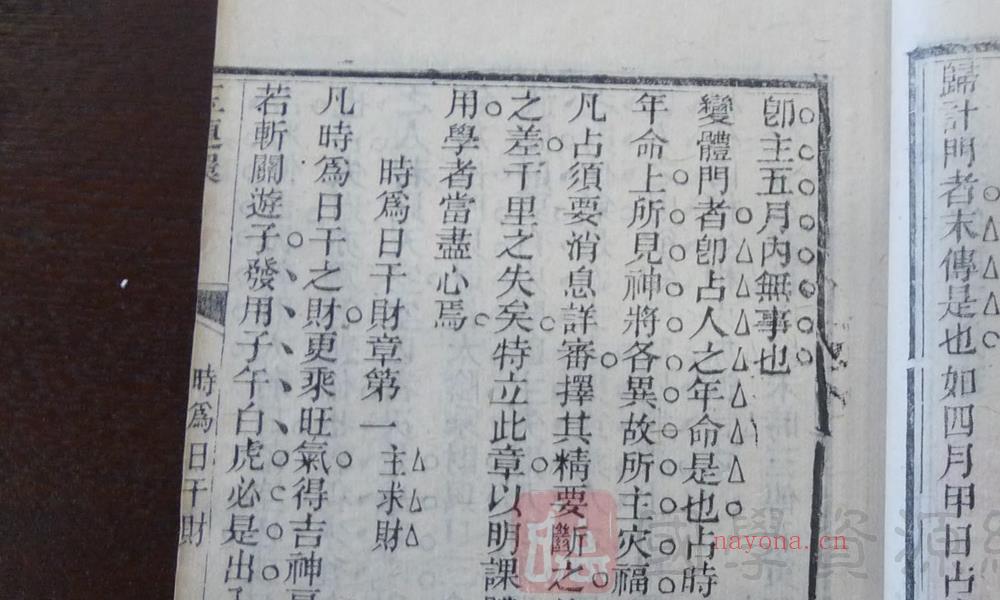 歸計門者末傳是也如四月甲日占
卽主五月內無事也
變體門者卽占人之年命是也占時
年命上所見神將各異故所主灾福
凡占須要消息詳審擇其精要斷之
之差千里之失矣特立此章以明課
用學者當盡心焉
時爲日干財章第一 主求財
凡時爲日干之財更乘旺氣得吉神
若斬關遊子發用子午白虎必是出
時爲日干財
國學資源
nayona.cn